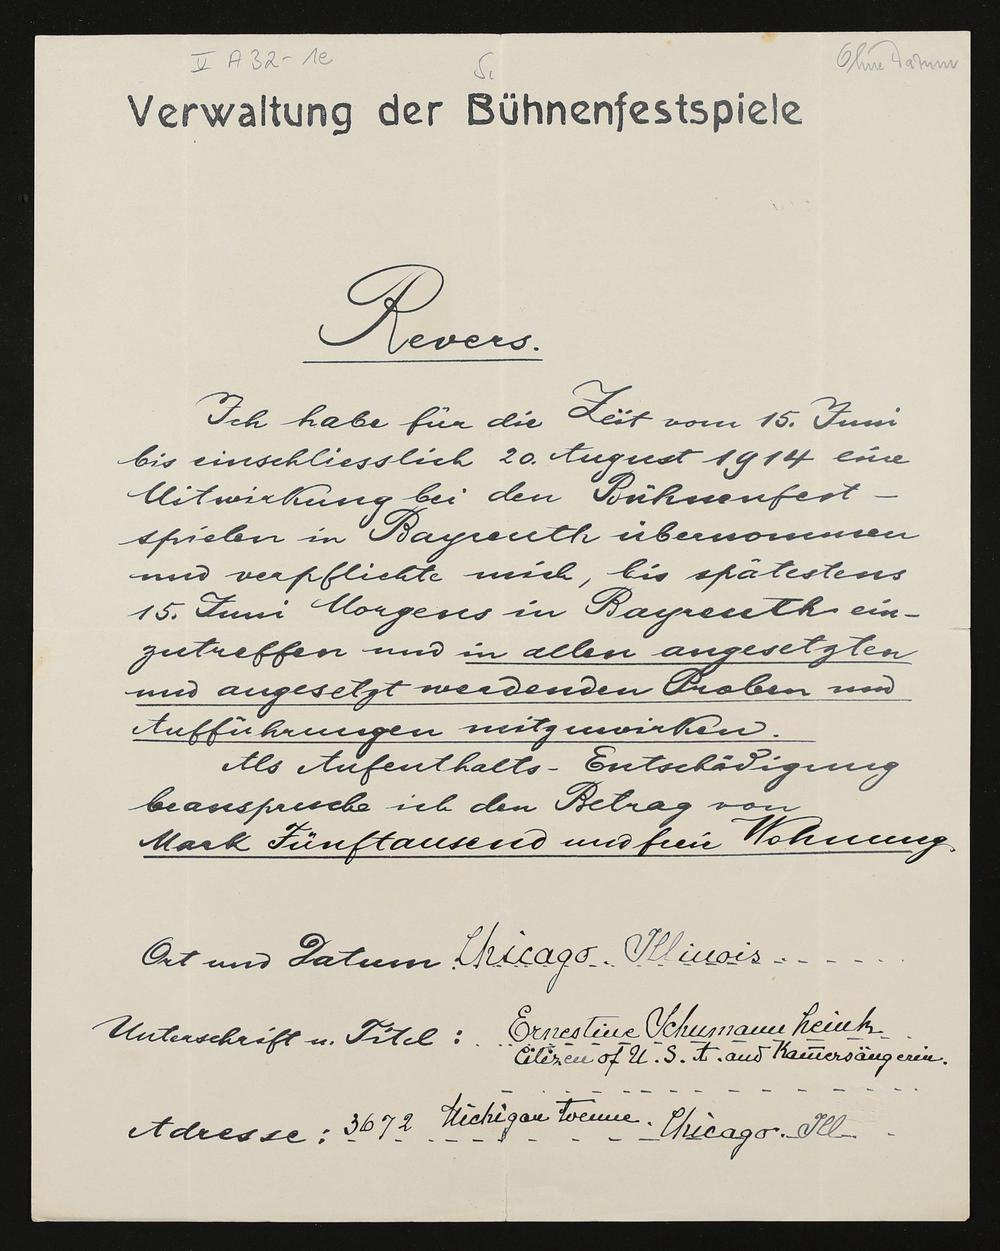 V A 32-1e
Ohne Datum
Verwaltung der Bühnenfestspiele
Revers.
Ich habe für die Zeit vom 15. Juni
bis einschliesslich 20. August 1914 eine
Mitwirkung bei den Bühnenfest-
spielen in Bayreuth übernommen
und verpflichte mich, bis spätestens
15. Juni Morgens in Bayreuth ein-
zutreffen und in allen angesetzten
und angesetzt werdenden Proben und
Aufführungen mitzuwirken.
Als Aufenthalts-Entschädigung
beanspruche ich den Betrag von
Mark Fünftausend und freie Wohnung.
Ort und Datum Chicago. Illinois
Unterschrift u. Titel: Ernestine Schumann Heink
Citizen of U. S. A. and Kam̄ersängerin.
Adresse: 3672 Michigan Avenue. Chicago. Ill